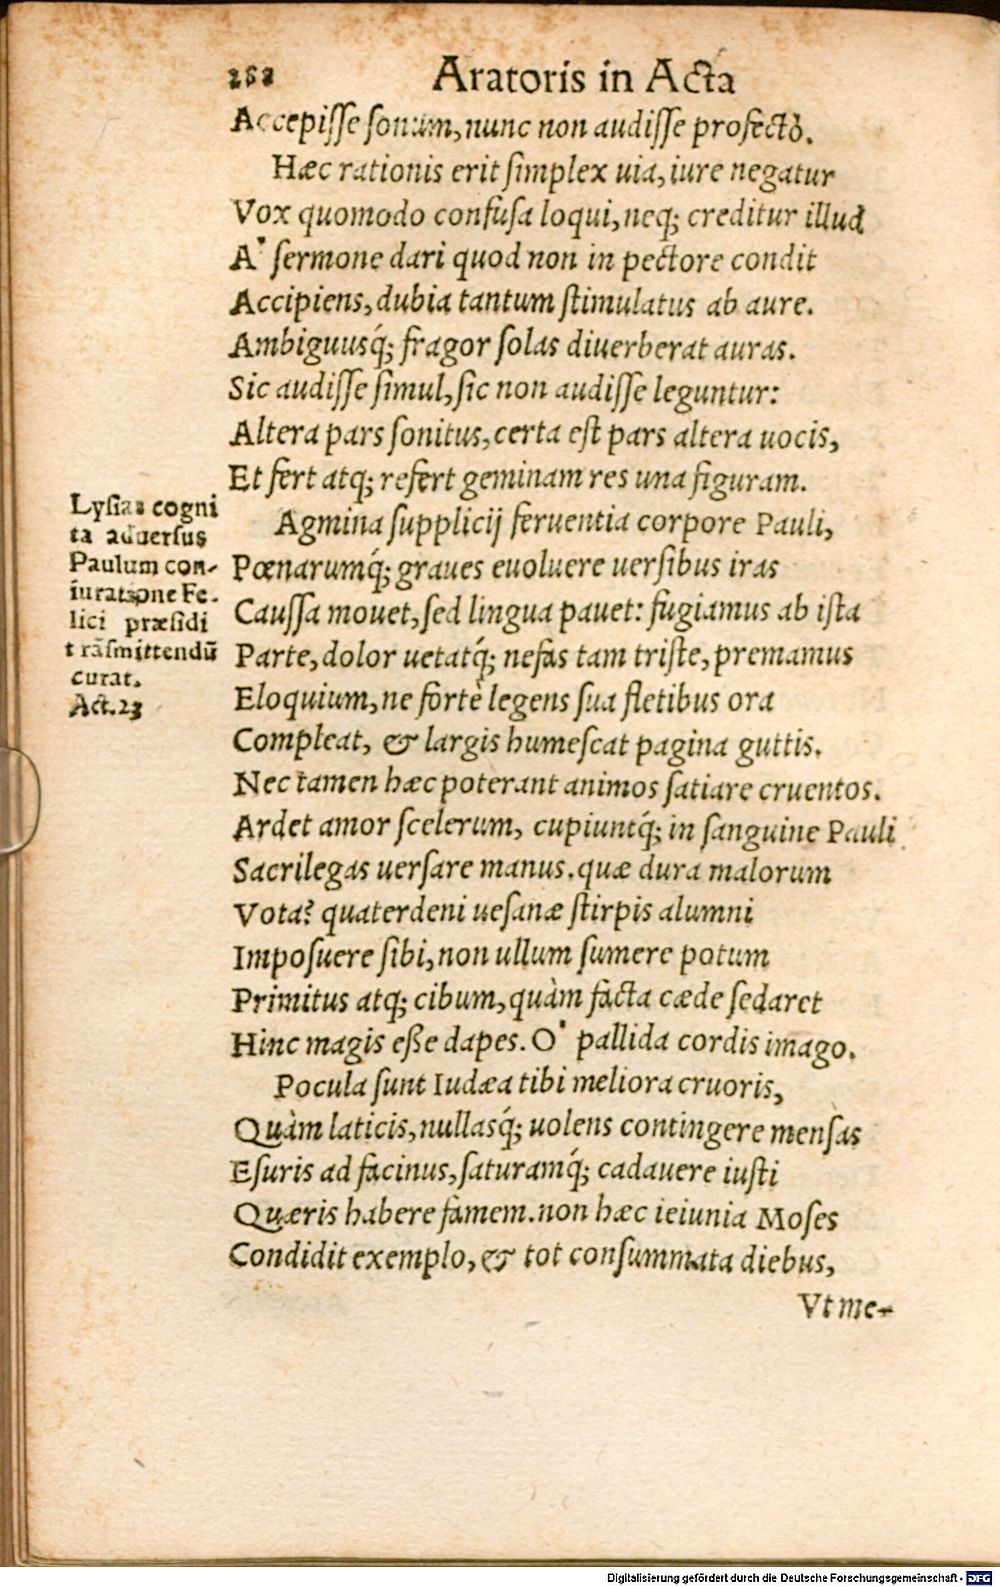 268 Aratoris in Acta
Accepisse sonum, nunc non audisse profectò.
Hæc rationis erit simplex uia, iure negatur
Vox quomodo confusa loqui, neq; creditur illud
A' sermone dari quod non in pectore condit
Accipiens, dubia tantum stimulatus ab aure.
Ambiguusq́; fragor solas diuerberat auras.
Sic audisse simul, sic non audisse leguntur:
Altera pars sonitus, certa est pars altera uocis,
Et fert atq; refert geminam res una figuram.
Agmina supplicij feruentia corpore Pauli,
Pœnarumq́; graues euoluere uersibus iras
Caussa mouet, sed lingua pauet: fugiamus ab ista
Parte, dolor uetatq́; nefas tam triste, premamus
Eloquium, ne fortè legens sua fletibus ora
Compleat, & largis humescat pagina guttis.
Nec tamen hæc poterant animos satiare cruentos.
Ardet amor scelerum, cupiuntq́; in sanguine Pauli
Sacrilegas uersare manus. quæ dura malorum
Vota? quaterdeni uesanæ stirpis alumni
Imposuere sibi, non ullum sumere potum
Primitus atq; cibum, quàm facta cæde sedaret
Hinc magis eße dapes. O' pallida cordis imago.
Pocula sunt Iudæa tibi meliora cruoris,
Quàm laticis, nullasq́; uolens contingere mensas
Esuris ad facinus, saturamq́; cadauere iusti
Quæris habere fàmem. non hæc ieiunia Moses
Condidit exemplo, & tot consummata diebus,
Vt me-
Lysias cogni
ta aduersus
Paulum con-
iuratione Fe-
lici præsidi
trāsmittendū
curat.
Act. 23
Digitalisierung gefördert durch die Deutsche Forschungsgemeinschaft - DFG